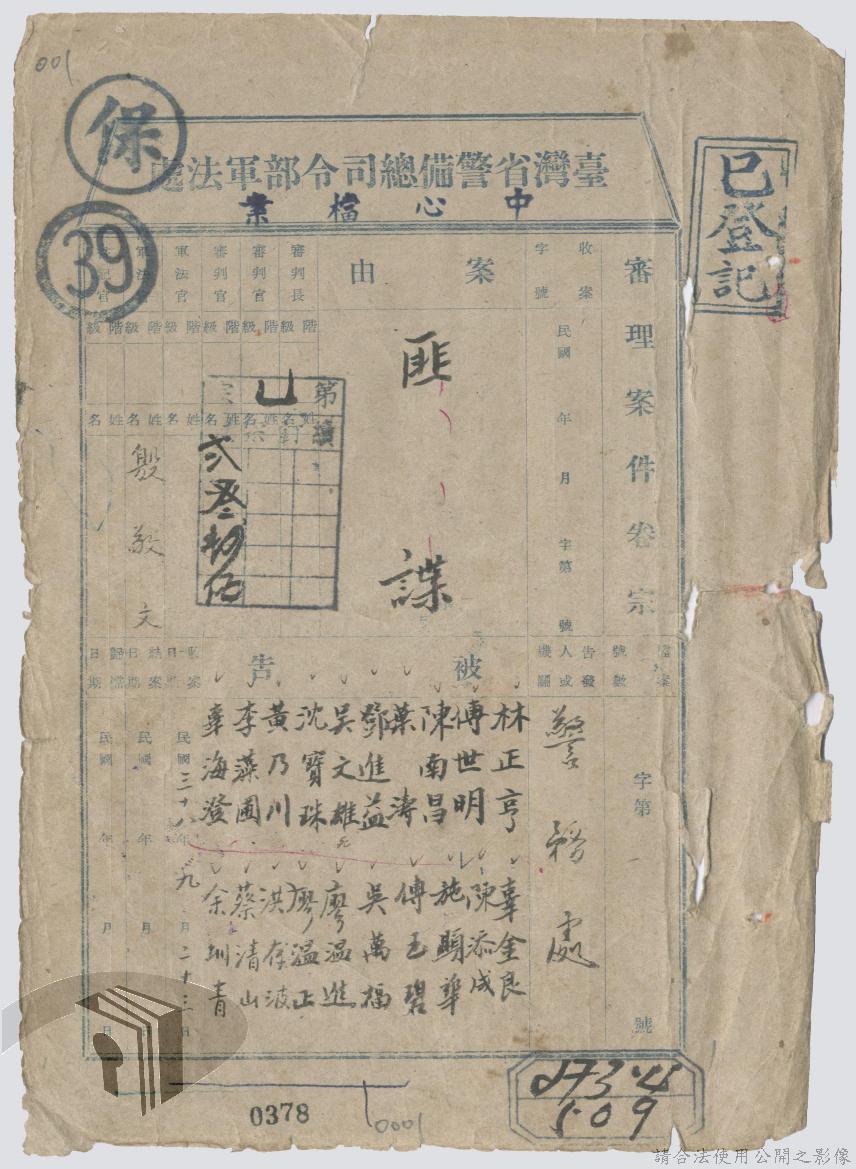 001
保
39
已登記
臺灣省警備總司令部軍法處
中心檔案
審理案件卷宗
收案 字號
民國 年 月 字第 號
案由
匪諜
審判長
審判官
審判官
軍法官
軍法官
書記官
階級
階級
階級
階級
階級
階級
姓名
姓名
姓名
姓名
姓名
姓名
殷敬文
第
檔案號數
字第 號
告發人或機關
警務處
被告
林正亨
傅世明
陳南昌
葉濤
鄧進益
吳文雄
沈寶珠
黃乃川
李藻圃
辜海澄
辜金良
陳添成
施顯華
傅玉碧
吳萬福
廖溫進
廖溫正
洪存波
蔡清山
余圳青
收案日期
民國三十八年九月二十三日
結案日期
民國 年 月 日
歸檔日期
民國 年 月 日
0378
0001
請合法使用公開之影像